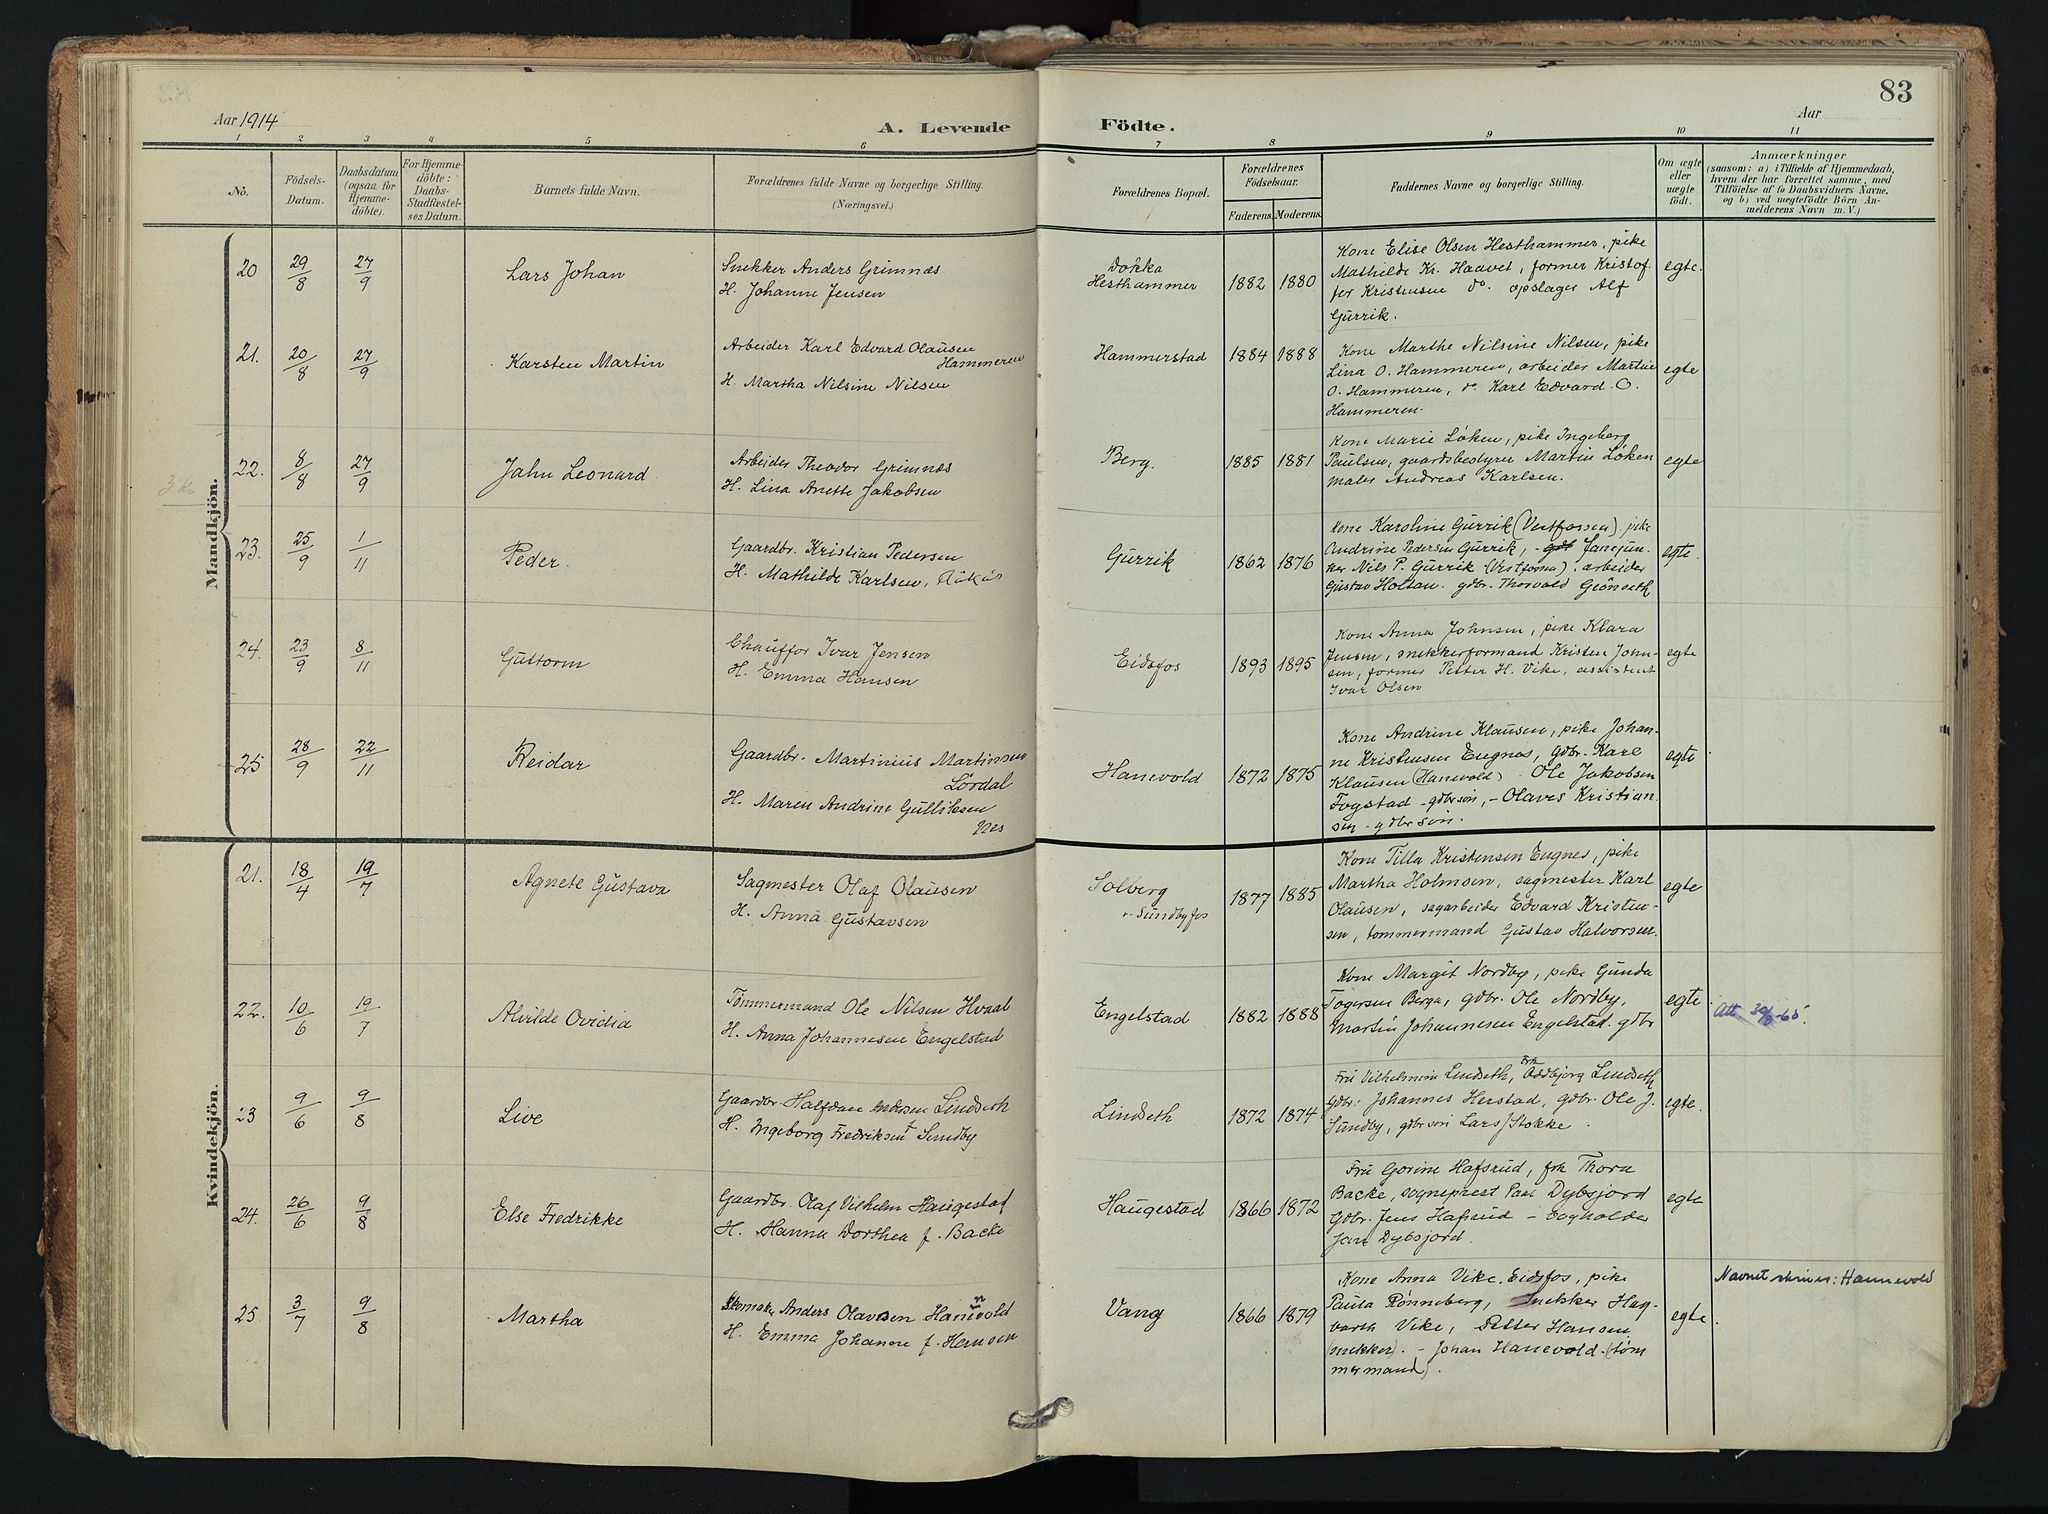 83
Aar 1914
A. Levende
Födte.
Aar
1 2 3 4 5 6 7 8 9 10 11
No.
Födsels-
Datum.
Daabsdatum
(ogsaa for
Hjemme-
döbte).
For Hjemme-
döbte:
Daabs-
Stadfæstel-
ses Datum.
Barnets fulde Navn.
Forældrenes fulde Navne og borgerlige Stilling.
(Næringsvei.)
Forældrenes Bopæl.
Forældrenes
Födselsaar.
Faderens. Moderens.
Faddernes Navne og borgerlige Stilling.
Om ægte
eller
uægte
født.
Anmærkninger
(saasom: a) i Tilfælde af Hjemmedaab,
hvem der har forrettet samme, med
Tilföielse af to Daabsvidners Navne,
og b) ved uægtefödte Börn An-
melderens Navn m. V.)
Mandkjön.
20 29/8 27/9 Lars Johan
Snekker Anders Grimnæs
H. Johanne Jensen
Dokka
Hesthammer
1882 1880
Kone Elise Olsen Hesthammer, pike
Mathilde Kr. Haavet, former Kristof
fer Kristensen do. opslager Alf
Gurrik.
egte.
21. 20/8 27/9 Karsten Martin
Arbeider Karl Edvard Olausen
Hammeren
H. Martha Nilsine Nilsen
Hammerstad
1884 1888
Kone Marthe Nilsine Nilsen, pike
Lina O. Hammeren, arbeider Martin
O. Hammeren, do Karl Edvard O.
Hammeren.
egte
3 kr
22. 8/8 27/9 Jahn Leonard
Arbeider Theodor Grimnæs
H. Lina Anette Jakobsen
Berg.
1885 1881
Kone Marie Löken, pike Ingeberg
Paulsen, gaardsbestyrer Martin Löken
maler Andreas Karlsen.
egte
23. 25/9 1/11 Peder.
Gaardbr. Kristian Pedersen
H. Mathilde Karlsen,
Gurrik
1862 1876
Kone Karoline Gurrik (Vestfossen), pike
Andrine Pedersen Gurrik,
ker Nils P. Gurrik (Vestfossen), arbeider
Gustav Holtan. gdbr. Thorvald Grönseth
egte.
24. 23/9 8/11 Guttorm
Chauffør Ivar Jensen
H. Emma Hansen
Eidsfos
1893 1895
Kone Anna Johnsen, pike Klara
Jensen, snekkerformand Kristen John-
sen, former Petter H. Vike, assistent
Ivar Olsen
egte
25 28/9 22/11 Reidar
Gaardbr. Martinius Martinsen
Lördal
H. Maren Andrine Gulliksen
Nes
Hanevold
1872 1875
Kone Andrine Klausen, pike Johan-
ne Kristensen Engnes, gdbr. Karl
Klausen (Hanevold) - Ole Jakobsen
Fogstad - gdbr sön, - Olaves Kristian
sen - gdbr sön.
egte
Kvindekjön.
21. 18/4 19/7 Agnete Gustava
Sagmester Olaf Olausen
H. Anna Gustavsen
Solberg
v. Sundbyfos
1877 1885
Kone Tilla Kristensen Engnes, pike
Martha Holmsen, sagmester Karl
Olausen, sagarbeider Edvard Kristen-
sen, tømmermand Gustav Halvorsen.
egte
22. 10/6 19/7 Alvilde Ovidia
Tömmermand Ole Nilsen Hvaal
H. Anna Johannesen Engelstad
Engelstad
1882 1888
Kone Margit Nordby, pike Gunda
Togersen Berga, gdbr. Ole Nordby,
Martin Johannesen Engelstad. gdbr
egte.
Att. 30/8-65.
23 9/6 9/8 Live
Gaardbr. Halfdan Andersen Lindseth
H. Ingeborg Fredriksen f Sundby
Lindseth
1872 1874
Fru Vilhelmine Lindseth, Frk Oddbjørg Lindseth
Gdbr. Johannes Herstad, gdbr. Ole J.
Sundby, gdbr sön Lars J Stokke.
egte.
24. 26/6 9/8 Else Fredrikke
Gaardbr. Olaf Vilhelm Haugestad
H. Hanna Dorthea f. Backe
Haugestad
1866 1872
Fru Gorine Hafsrud, frk Thora
Backe, sogneprest Paul Dybsjord
Gdbr. Jens Hafsrud -
Jan Dybsjord.
egte
25 3/7 9/8 Martha
Skomaker Anders Olavesen Hannevold
H. Emma Johanne f. Hansen
Vang
1866 1879
Kone Anna Vike, Eidsfos, pike
Paula Rönneberg, Snekker Hag-
barth Vike, Petter Hansen
(snekker). - Johan Hanevold. (töm
mermand).
egte.
Navnet skrives: Hannevold